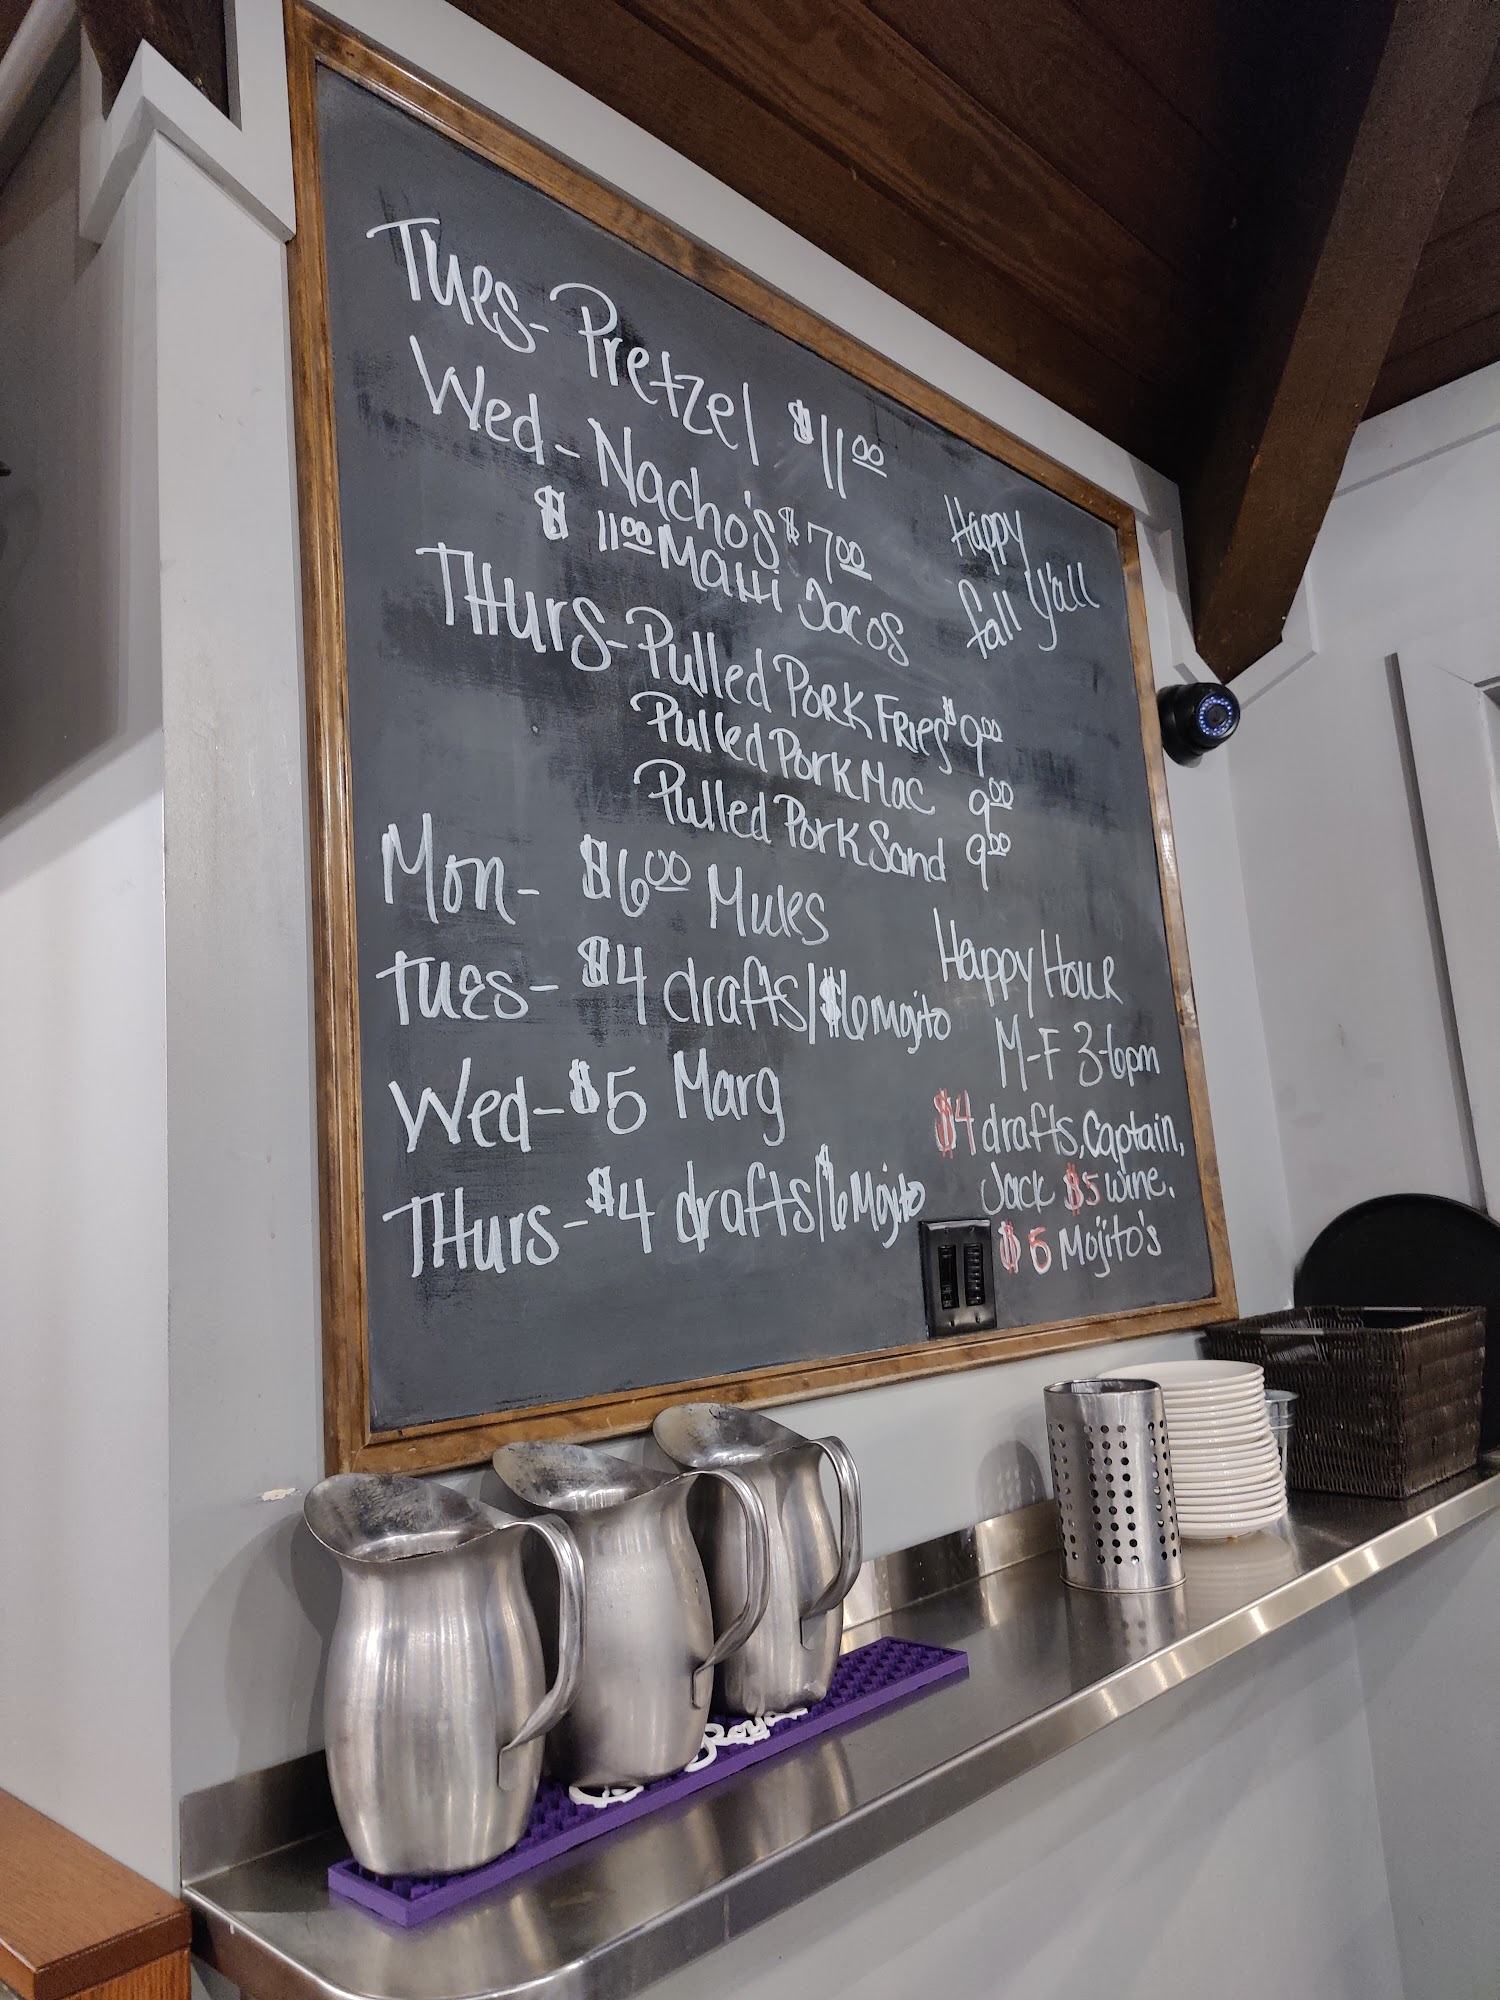 Tues- Pretzel $11.00
Wed- Nacho's $7.00
$11.00 MaHi Tacos
Happy
fall y'all
THurs- Pulled Pork Fries $9.00
Pulled Pork Mac 9.00
Pulled Pork Sand 9.00
Mon- $6.00 Mules
Tues- $4 drafts/$6 Mojito
Wed- $5 Marg
THurs- $4 drafts/$6 Mojito
Happy Hour
M-F 3-6pm
$4 drafts, Captain,
Jack $5 wine.
$6 Mojito's